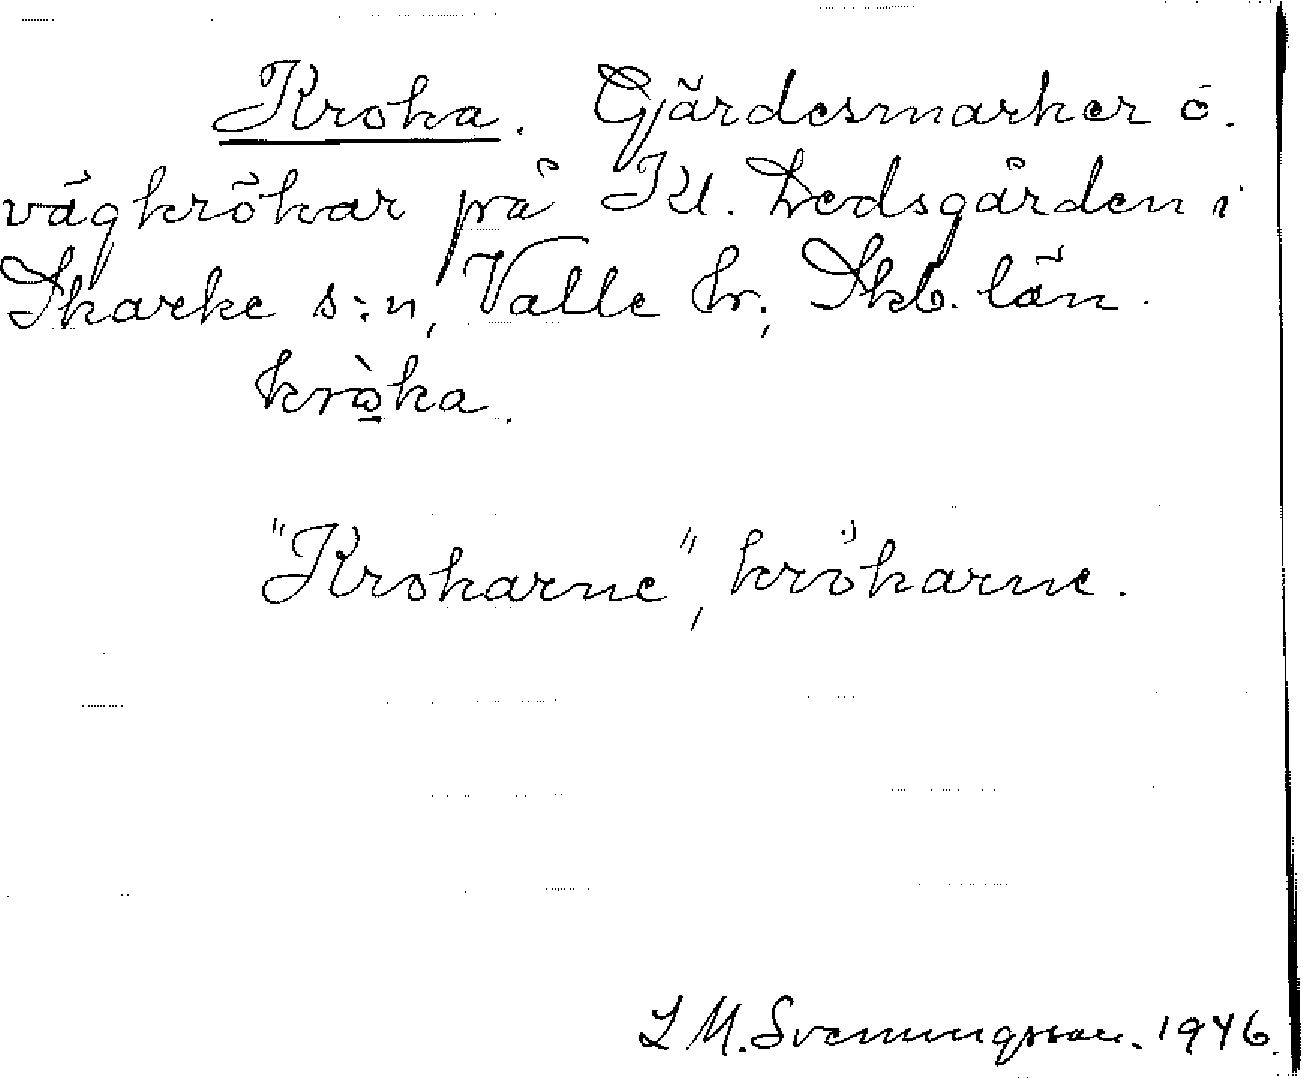 Kroka. Gjärdesmarker o.
vägkrökar på Kl. Ledsgården i
Skarke s:n, Valle hr., Skb. län.
kròka.
"Krokarne", krökarne.
L M. Svenungsson. 1946.